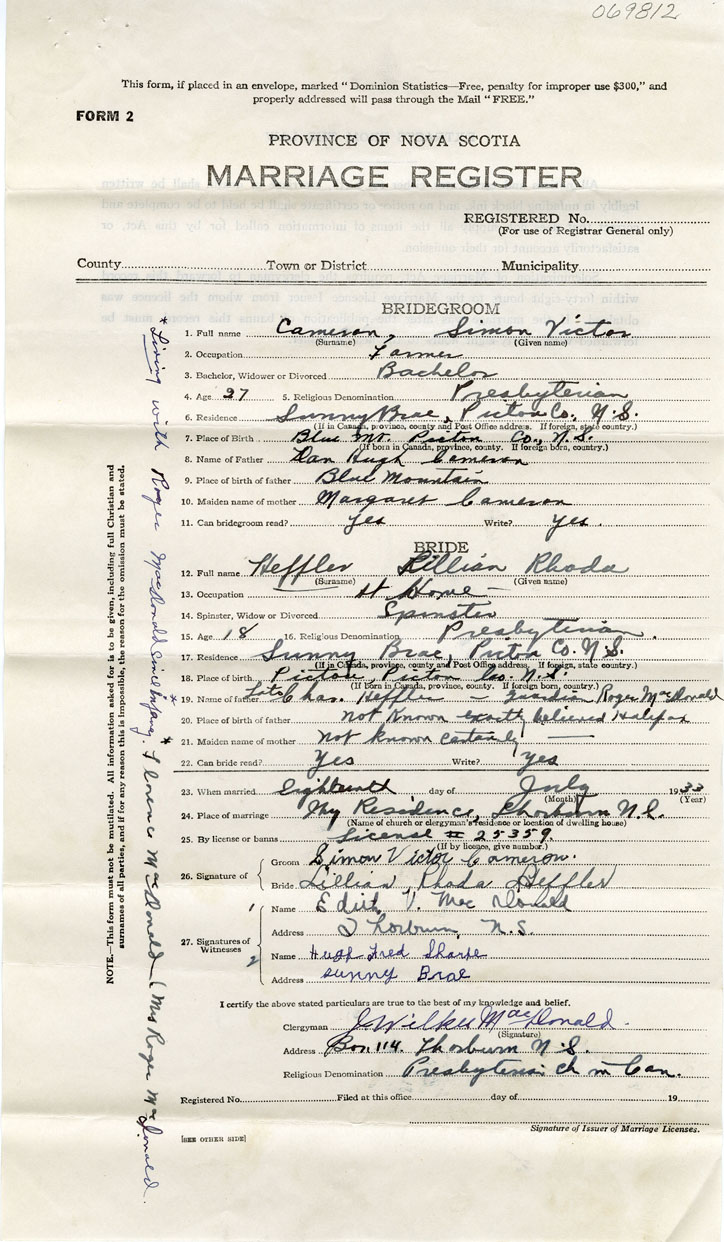 069812
This form, if placed in an envelope, marked "Dominion Statistics—Free, penalty for improper use $300," and
properly addressed will pass through the Mail "FREE."
FORM 2
PROVINCE OF NOVA SCOTIA
MARRIAGE REGISTER
REGISTERED No.
(For use of Registrar General only)
County Town or District Municipality
BRIDEGROOM
1. Full name Cameron, Simon Victor
(Surname) (Given name)
2. Occupation Farmer
3. Bachelor, Widower or Divorced Bachelor
4. Age 27 5. Religious Denomination Presbyterian
6. Residence Sunny Brae, Pictou Co. N.S.
(If in Canada, province, county and Post Office address. If foreign, state country.)
7. Place of Birth Blue Mt. Pictou Co., N.S.
(If born in Canada, province, county. If foreign born, country.)
8. Name of Father Dan Hugh Cameron
9. Place of birth of father Blue Mountain
10. Maiden name of mother Margaret Cameron
11. Can bridegroom read? Yes Write? Yes.
BRIDE
12. Full name Heffler Lillian Rhoda
(Surname) (Given name)
13. Occupation At Home
14. Spinster, Widow or Divorced Spinster
15. Age 18 16. Religious Denomination Presbyterian.
17. Residence Sunny Brae, Pictou Co. N.S.
(If in Canada, province, county and Post Office address. If foreign, state country.)
18. Place of birth Pictou, Pictou Co. N.S.
(If born in Canada, province, county. If foreign born, country.)
19. Name of father Late Chas. Heffler — guardian Roger MacDonald
20. Place of birth of father not known exactly believed Halifax
21. Maiden name of mother * not known certainly
22. Can bride read? Yes Write? Yes
23. When married eighteenth day of July 1933
(Month) (Year)
24. Place of marriage My Residence, Thorburn N.S.
(Name of church or clergyman's residence or location of dwelling house)
25. By license or banns License # 25359
(If by licence, give number.)
26. Signature of
Groom Simon Victor Cameron.
Bride Lillian Rhoda Heffler
27. Signatures of Witnesses
1 Name Edith V. MacDonald
Address Thorburn, N.S.
2 Name Hugh Fred Sharpe
Address Sunny Brae
I certify the above stated particulars are true to the best of my knowledge and belief.
Clergyman J Wilkie MacDonald.
(Signature)
Address Box 114. Thorburn N.S.
Religious Denomination Presbyterian Ch in Can.
Registered No. Filed at this office day of 19
Signature of Issuer of Marriage Licenses.
[SEE OTHER SIDE]
NOTE.—This form must not be mutilated. All information asked for is to be given, including full Christian and
surnames of all parties, and if for any reason this is impossible, the reason for the omission must be stated.
* Living with Roger MacDonald since Infancy, * Florence MacDonald (Mrs Roger MacDonald.